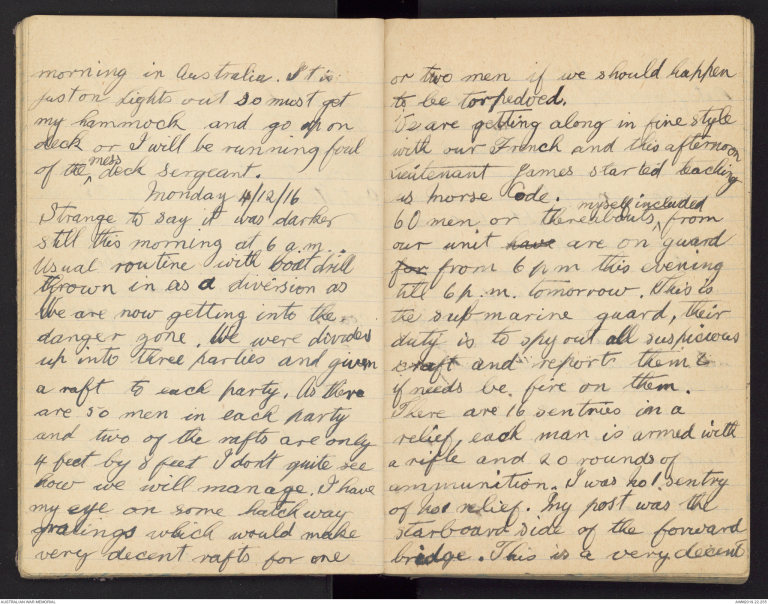 morning in Australia. It is
just on Lights out so must get
my hammock and go up on
deck or I will be running foul
of the mess deck sergeant.
Monday 4/12/16
Strange to say it was darker
still this morning at 6 a.m..
Usual routine with boat drill
thrown in as a diversion as
We are now getting into the
danger zone. We were divided
up into three parties and given
a raft to each party. As there
are 50 men in each party
and two of the rafts are only
4 feet by 8 feet I don't quite see
how we will manage. I have
my eye on some hatchway
gratings which would make
very decent rafts for one
or two men if we should happen
to be torpedoed.
We are getting along in fine style
with our French and this afternoon
Lieutenant James started teaching
us morse Code.
60 men or thereabouts, myself included from
our unit have are on guard
for from 6 p m this evening
till 6 p.m. tomorrow. This is
the submarine guard, their
duty is to spy out all suspicious
craft and report them &
if needs be fire on them.
There are 16 sentries in a
relief, each man is armed with
a rifle and 20 rounds of
ammunition. I was no 1 sentry
of no 1 relief. My post was the
starboard side of the forward
bridge. This is a very decent
AUSTRALIAN WAR MEMORIAL